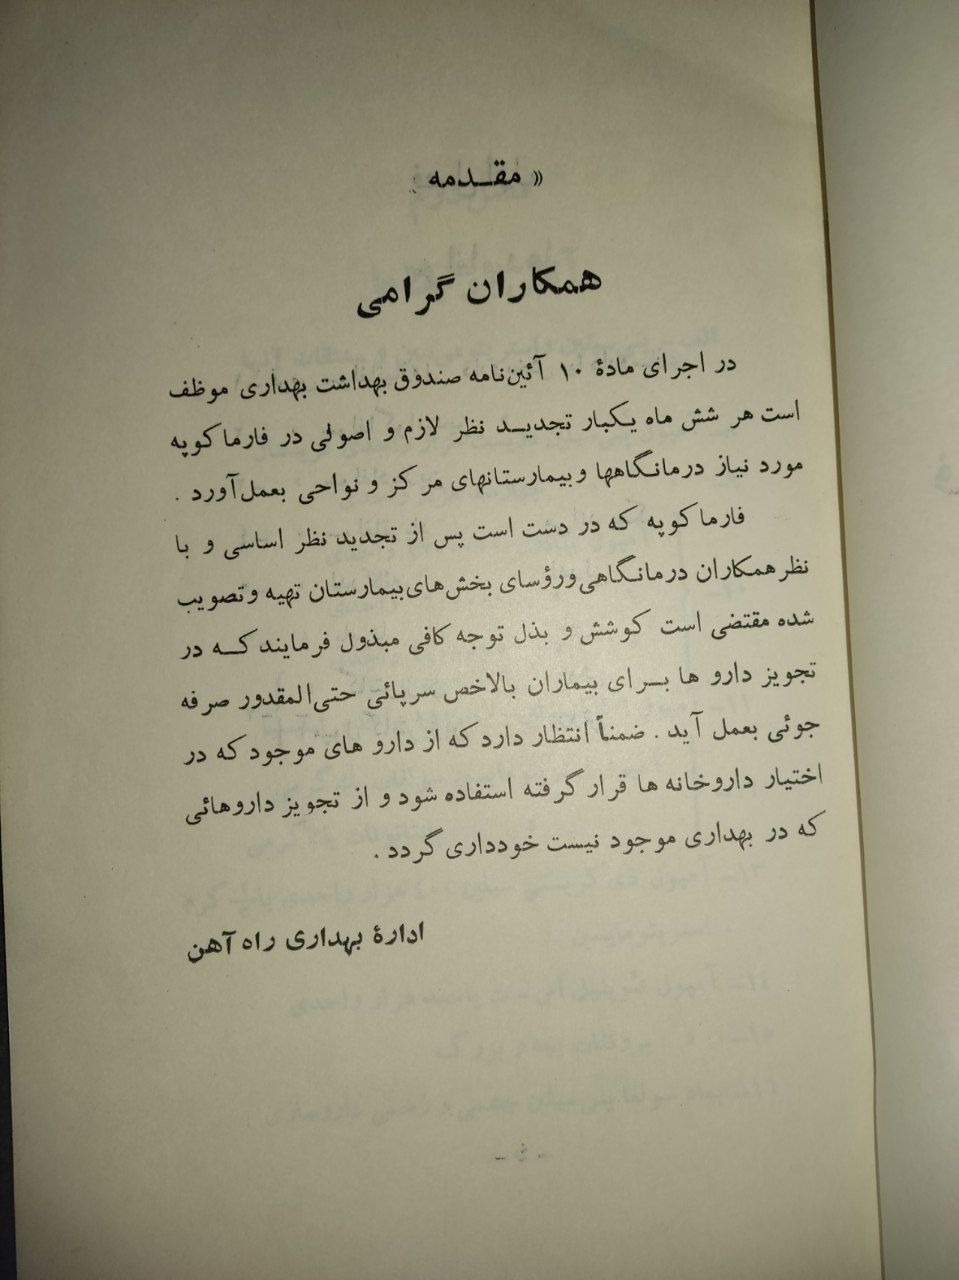 « مقـدمه :
همکاران گرامی
در اجرای مادهٔ ۱۰ آئین‌نامه صندوق بهداشت بهداری موظف
است هر شش ماه یکبار تجدیـد نظر لازم و اصولی در فارماکوپه
مورد نیاز درمانگاهها و بیمارستانهای مرکز و نواحی بعمل آورد .
فارماکوپه که در دست است پس از تجدید نظر اساسی و با
نظر همکاران درمانگاهی و رؤسای بخش‌های بیمارستان تهیه و تصویب
شده مقتضی است کوشش و بذل توجه کافی مبذول فرمایند کـه در
تجویز دارو ها بـرای بیماران بالاخص سرپائی حتی‌المقدور صرفه
جوئی بعمل آید . ضمناً انتظار دارد که از دارو های موجود که در
اختیار داروخانه ها قرار گرفته استفاده شود و از تجویز داروهائی
که در بهداری موجود نیست خودداری گردد .
ادارهٔ بهداری راه آهن
- ٤ -